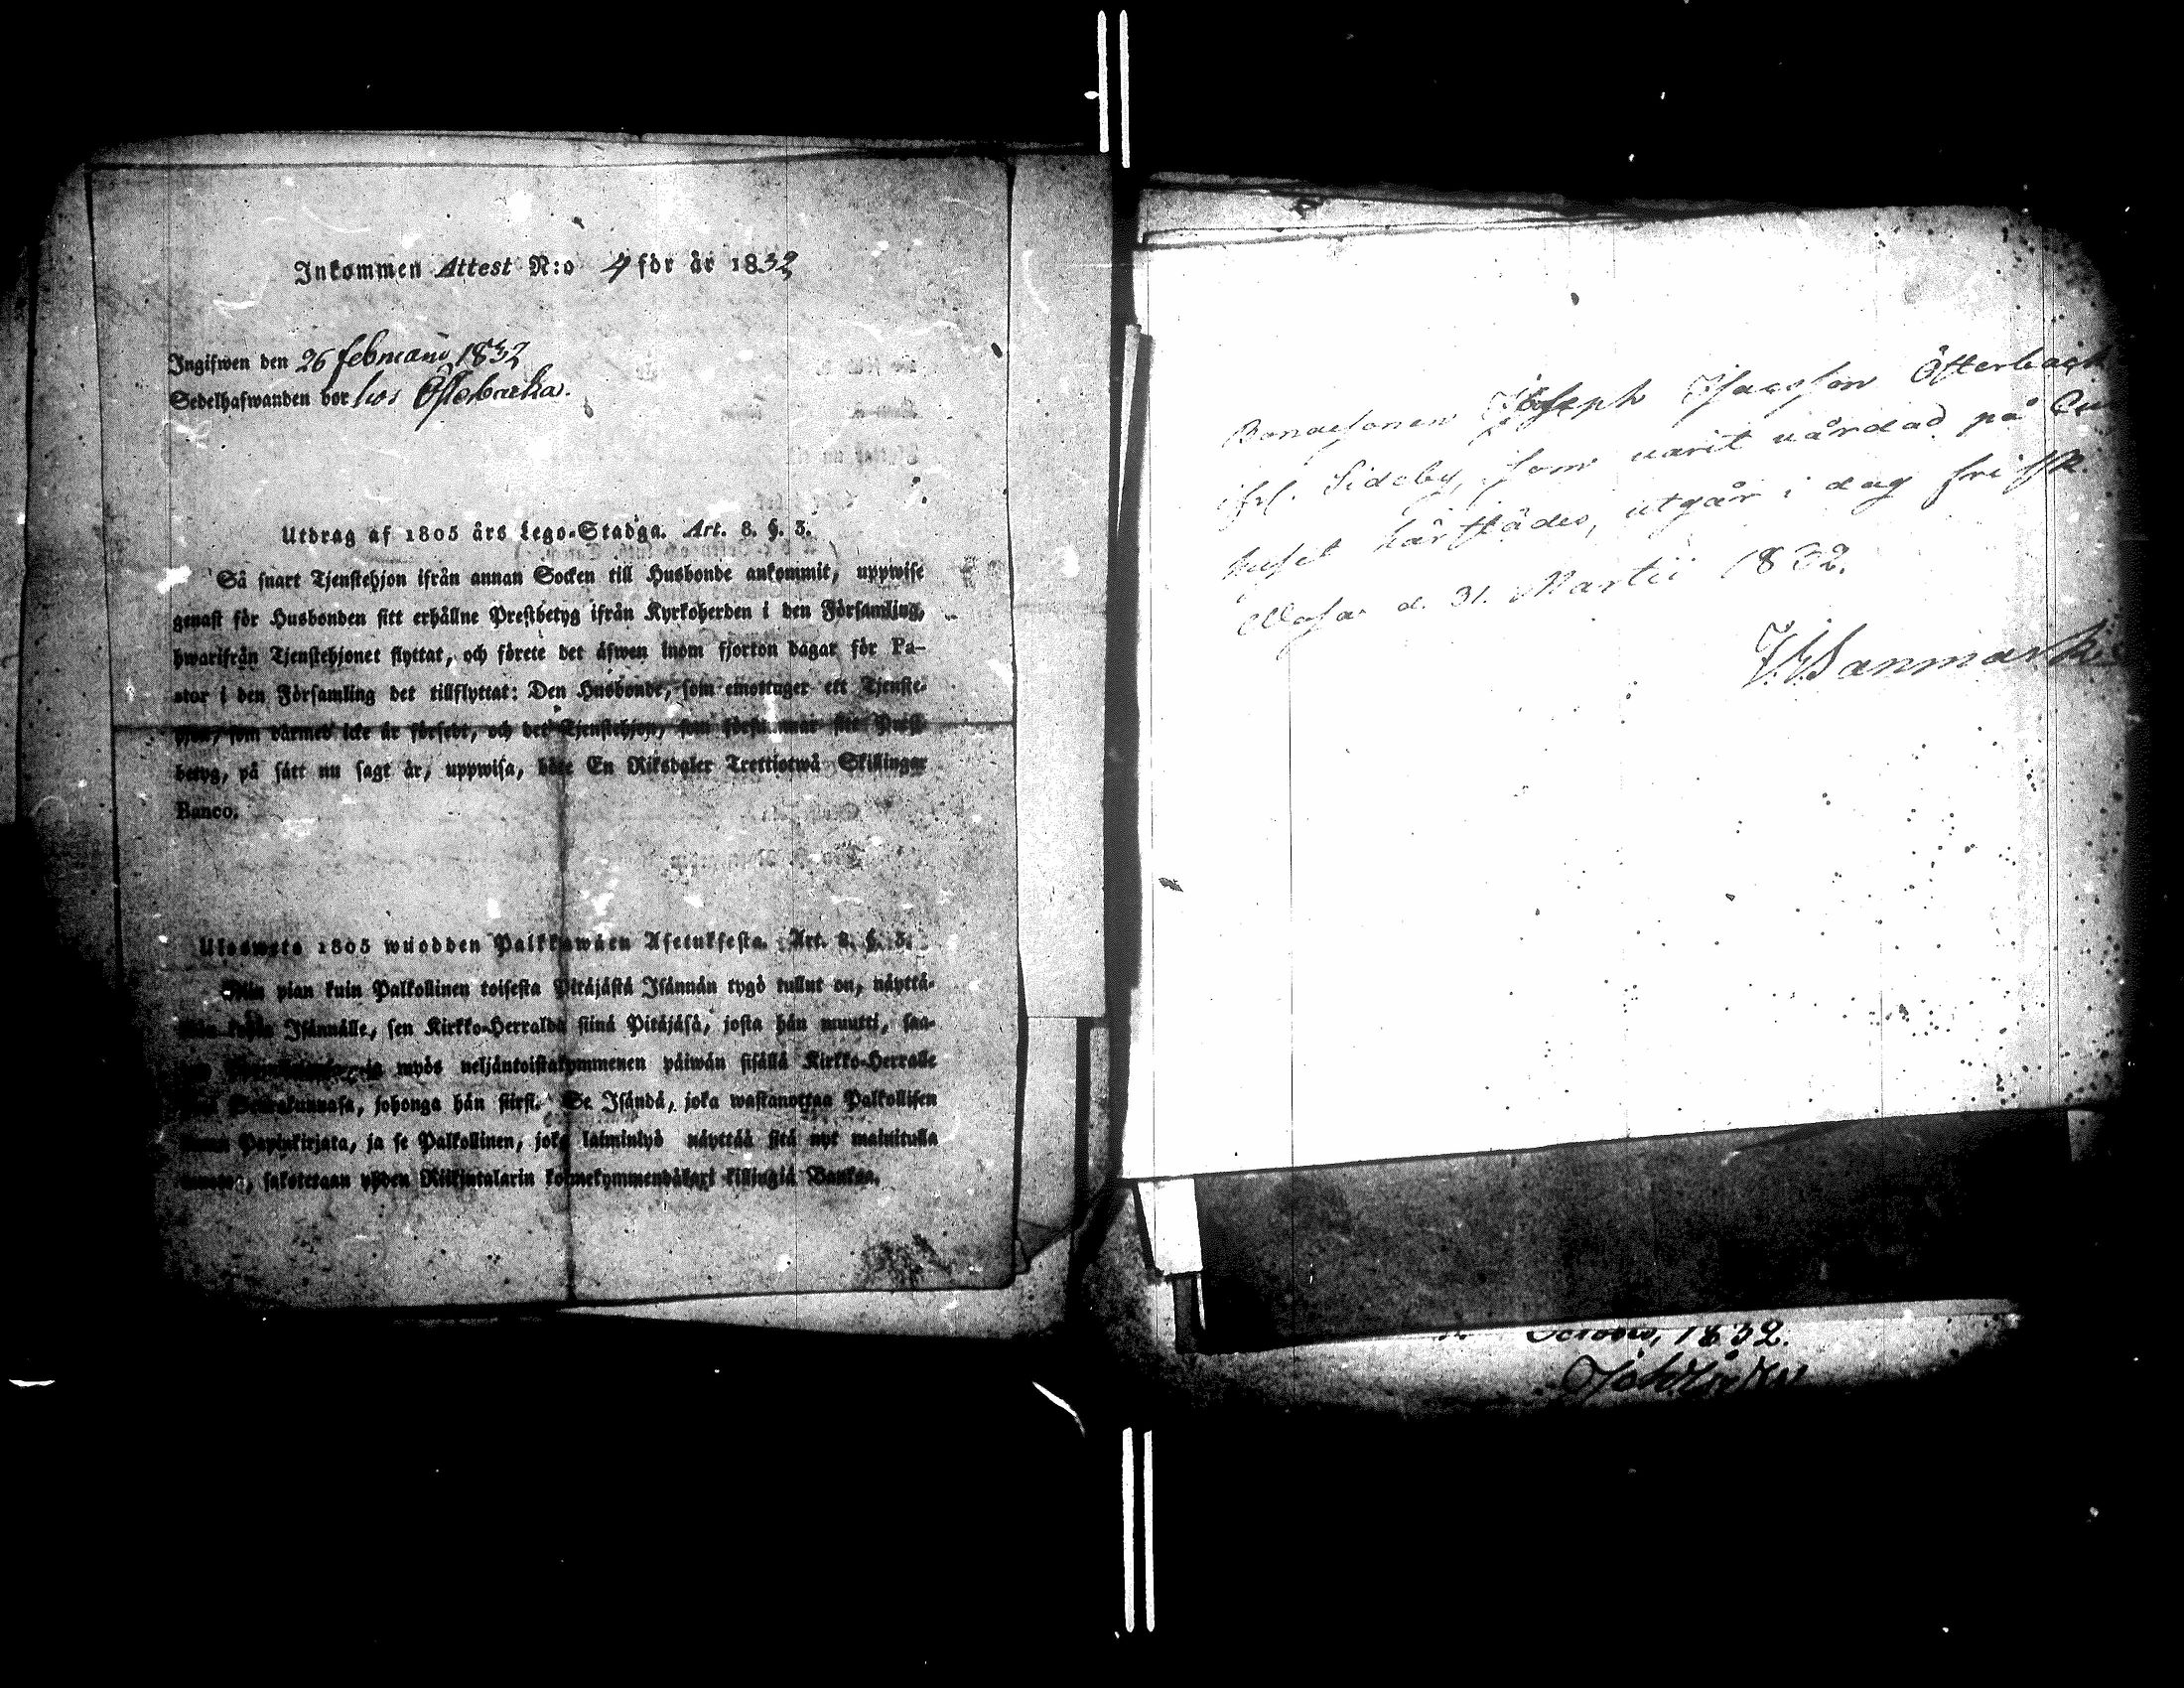 Inkommen Attest N:o 4 för år 1832
Ingifwen den 26 februarii 1832
Sedelhafwanden bor hos Östebacka.
Utdrag af 1805 års Lego-Stadga. Art. 8. §. 3.
Så snart Tjenstehjon ifrån annan Socken till Husbonde ankommit, uppwise
genast för Husbonden sitt erhållne Prestbetyg ifrån Kyrkoherden i den Församling,
hwarifrån Tjenstehjonet flyttat, och förete det äfwen inom fjorton dagar för Pa-
stor i den Församling det tillflyttat: Den Husbonde, som emottager ett Tjenste-
hjon, som därmed icke är försedt, och det Tjenstehjon, som försummar sitt Prest-
betyg, på sätt nu sagt är, uppwisa, böte En Riksdaler Trettiotwå Skillingar
Banco.
1805 wuoden Palkkawäen Asetuksesta. Art. 8. §. 3.
Niin pian kuin Palkollinen toisesta Pitäjästä Isännän tygö tullut on, näyttä-
Isännälle, sen Kirkko-Herralda siinä Pitäjäsä, josta hän muutti, saa-
ja myös neljäntoistakymmenen päiwän sisällä Kirkko-Herralle
Seurakunnasa, johonga hän siirsi. Se Isändä, joka wastanottaa Palkollisen
Papinkirjata, ja se Palkollinen, joka laiminlyö näyttää sitä nyt mainitulla
, sakotetaan yhden Riikintalarin kolmekymmendäkaxi killingiä Bankoa.
Bondesonen Joseph Isacsson Österback
ifrl. Sideby, som varit vårdad på Cur
huset härstädes, utgår i dag frisk.
Wasa d. 31. Martii 1832.
Sanmark
1832.